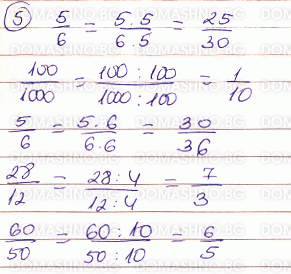 5 5/6 = 5.5/6.5 = 25/30
100/1000 = 100:100/1000:100 = 1/10
5/6 = 5.6/6.6 = 30/36
28/12 = 28:4/12:4 = 7/3
60/50 = 60:10/50:10 = 6/5
DOMASHNO.BG